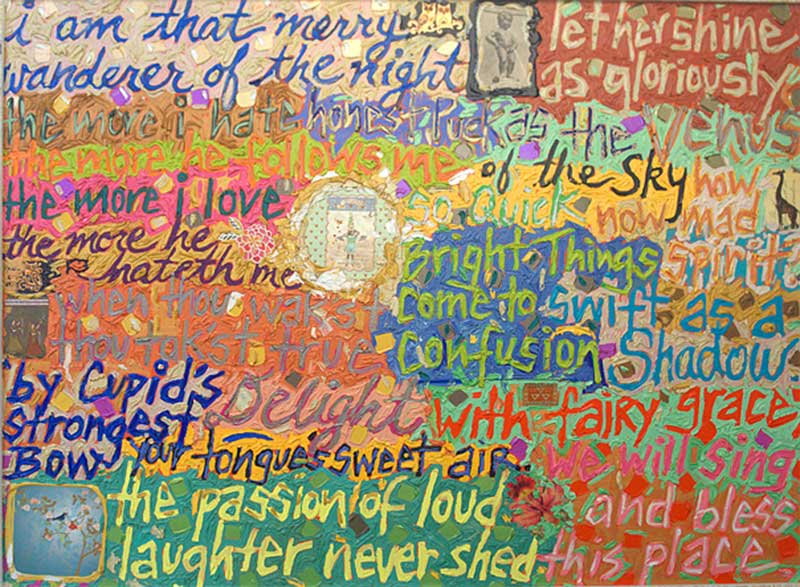 i am that merry
wanderer of the night
let her shine
as gloriously
the more i hate
honest Puck
as the Venus
of the Sky
the more he follows me
the more i love
the more he
hateth me
so quick
Bright Things
come to
Confusion
how
now mad
spirit?
swift as a
Shadow.
when thou wak'st
thou tak'st true
Delight
by Cupid's
strongest
Bow
your tongue's sweet air.
with fairy grace
we will sing
and bless
this place.
the passion of loud
laughter never shed.